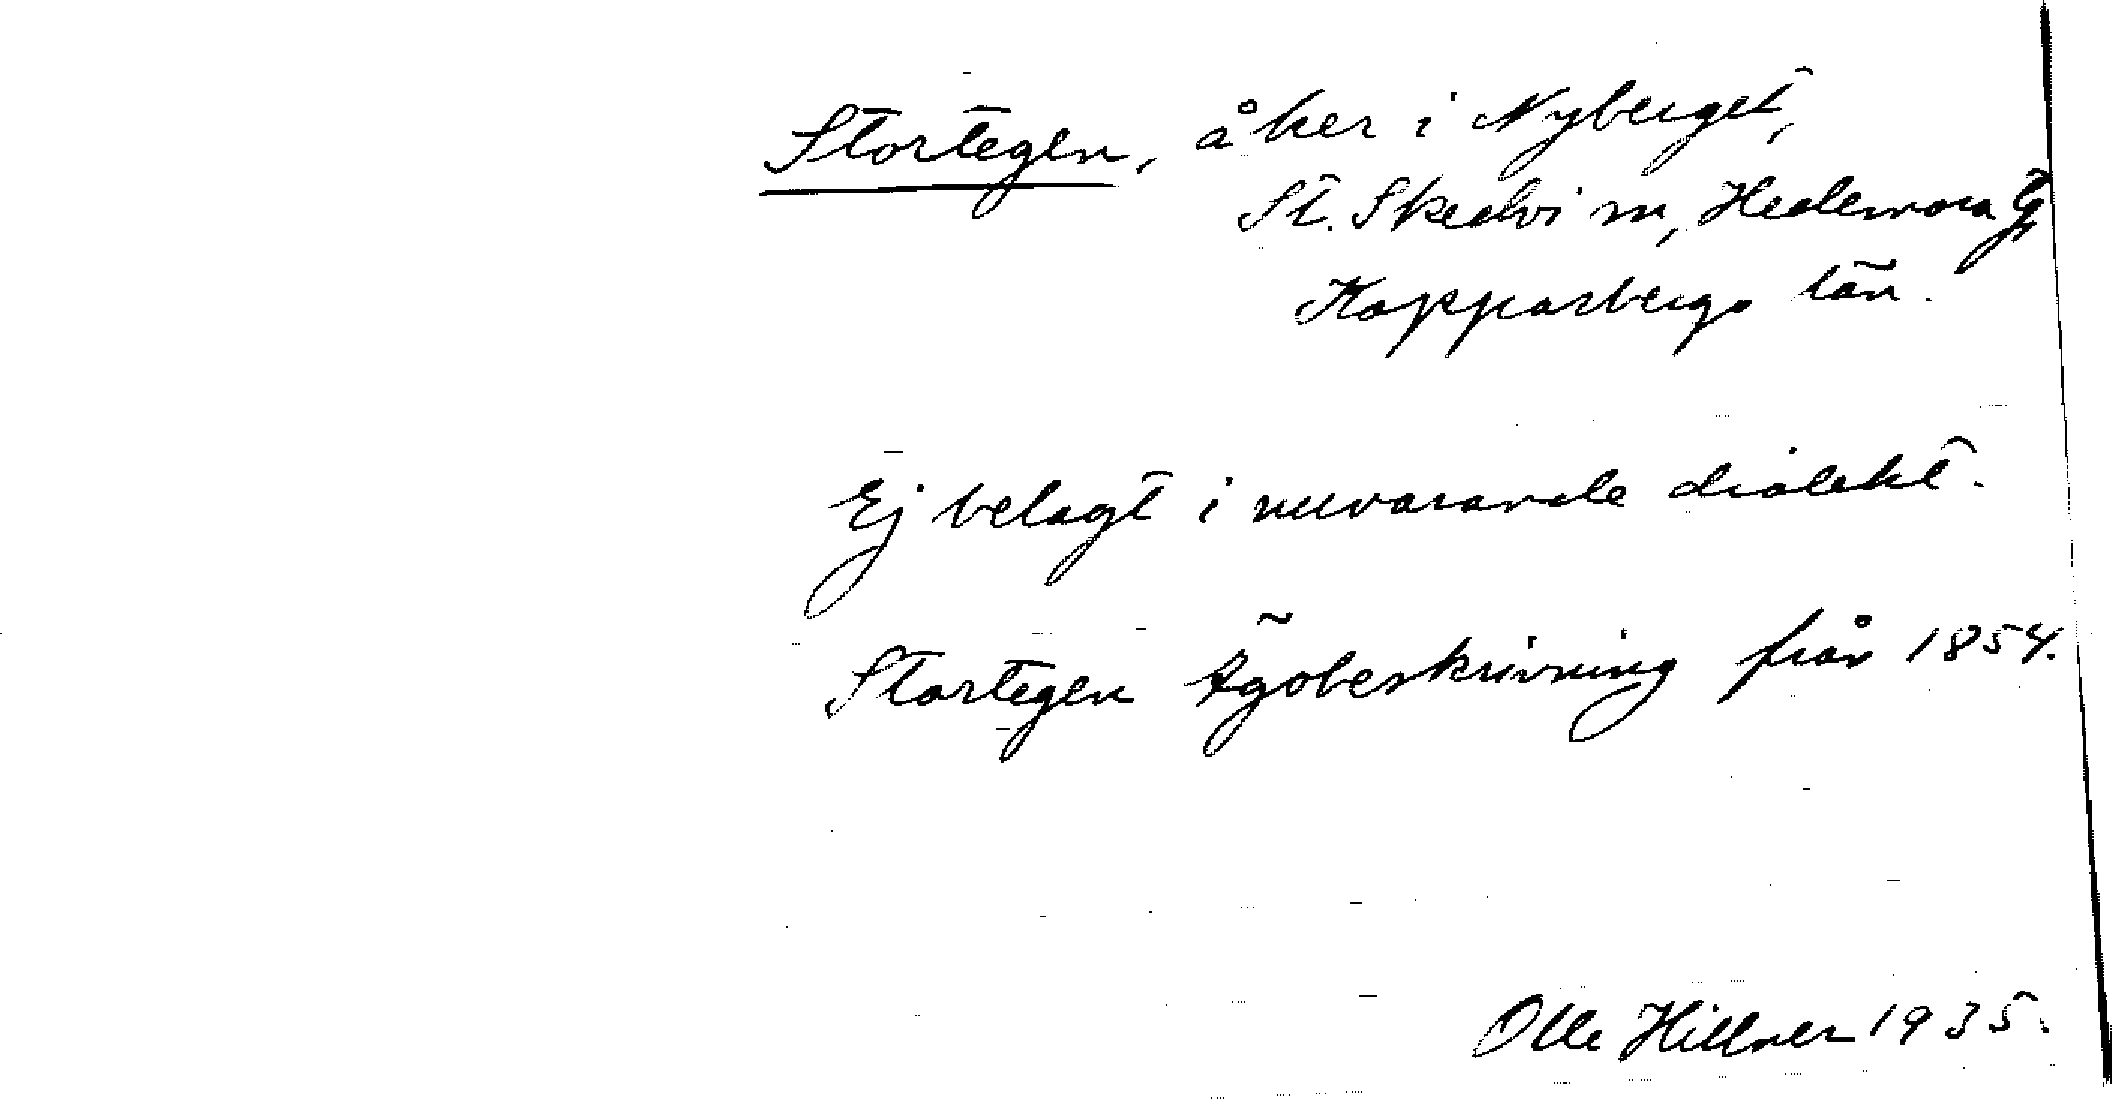 Stortegen, åker i Nyberget,
St. Skedvi sn, Hedemora tg,
Kopparbergs län.
Ej belagt i nuvarande dialekt.
Stortegen Ägobeskrivning från 1854.
Olle Hillner 1935.